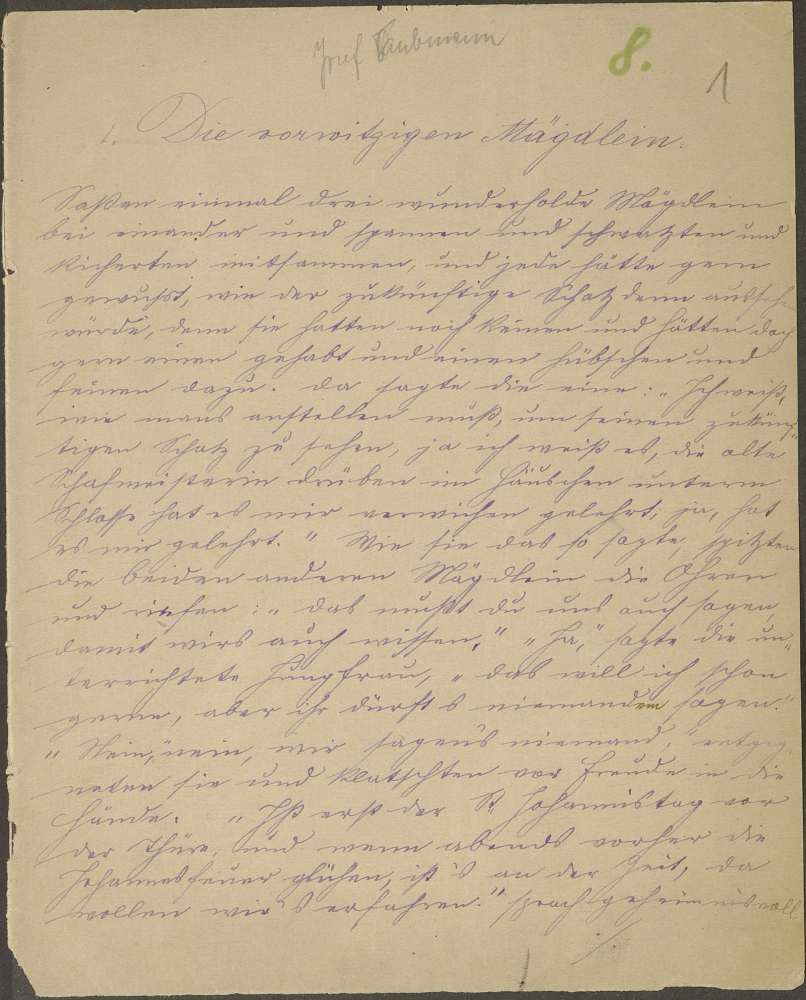 Josef Taubmann
8.
1
1. Die vorwitzigen Mägdlein.
Saßen einmal drei wunderholde Mägdlein
bei einander und spannen und schwatzten und
kicherten mitsammen, und jede hätte gern
gewußt, wie der zukünftige Schatz denn aussehen
würde, denn sie hatten noch keinen und hätten doch
gern einen gehabt und einen hübschen und
feinen dazu. Da sagte die eine: „Ich weiß,
wie mans anstellen muß, um seinen zukünf-
tigen Schatz zu sehen, ja ich weiß es, die alte
Schafmeisterin drüben im Häuschen unterm
Schlosse hat es mir verwichen gelehrt, ja, hat
es mir gelehrt." Wie sie das so sagte, spitzten
die beiden anderen Mägdlein die Ohren
und riefen: „das mußt du uns auch sagen,
damit wirs auch wissen." „Ja," sagte die un-
terrichtete Jungfrau, „das will ich schon
gerne, aber ihr dürft's niemandem sagen."
„Nein, nein, wir sagen's niemand," entgeg-
neten sie und klatschten vor Freude in die
Hände. „Ist erst der St. Johannistag vor
der Thüre, und wenn abends vorher die
Johannesfeuer glühen, ist's an der Zeit, da
wollen wir's erfahren." sprach geheimnisvoll
./.